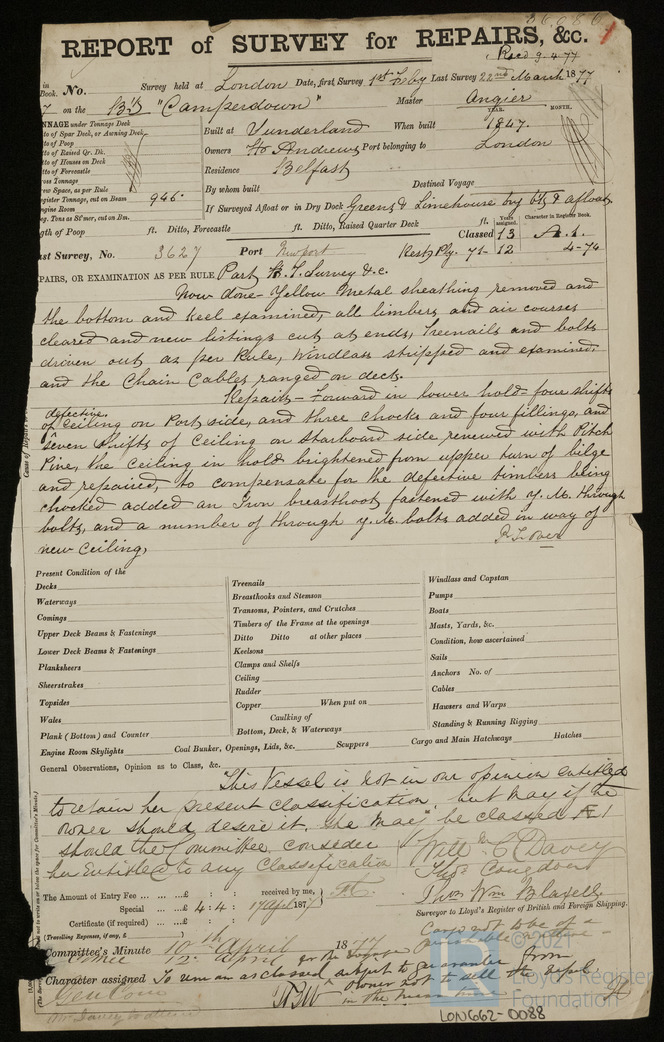 REPORT of SURVEY for REPAIRS, &c.
Recd 9.4.77
No. Survey held at London Date, first Survey 1st Feby Last Survey 22nd March 1877
on the "Camperdown" Master Angier
TONNAGE under Tonnage Deck
YEAR. MONTH.
of Spar Deck, or Awning Deck
Built at Sunderland When built 1847.
of Poop
of Raised Qr. Dk.
Owners Andrews Port belonging to London
of Houses on Deck
of Forecastle
Residence Belfast
Gross Tonnage
Crew Space, as per Rule
By whom built Destined Voyage
Register Tonnage, cut on Beam 946
Engine Room
If Surveyed Afloat or in Dry Dock Greens & Limehouse & afloat
Reg. Tons as St'mer, cut on Bm.
Years assigned. Character in Register Book.
gth of Poop ft. Ditto, Forecastle ft. Ditto, Raised Quarter Deck ft. Classed 13 A.1.
ast Survey, No. 3627 Port Newport 71-12 4-74
PAIRS, OR EXAMINATION AS PER RULE Part Survey &c.
Now done - Yellow Metal sheathing removed and
the bottom and keel examined, all limbers and air courses
cleared and new listings cut at ends, Treenails and bolts
driven out as per Rule, Windlass stripped and examined,
and the Chain Cables ranged on deck.
Repairs - Forward in lower hold - four shifts
defective
of Ceiling on Port side, and three chocks and four fillings, and
seven shifts of Ceiling on Starboard side renewed with Pitch
Pine, the Ceiling in hold brightened from upper turn of bilge
and repaired, to compensate for the defective timbers being
chocked added an Iron breasthook fastened with Y. M. through
bolts, and a number of through Y. M. bolts added in way of
new Ceiling,
Present Condition of the
Decks
Waterways
Comings
Upper Deck Beams & Fastenings
Lower Deck Beams & Fastenings
Planksheers
Sheerstrakes
Topsides
Wales
Plank (Bottom) and Counter
Engine Room Skylights
Treenails
Breasthooks and Stemson
Transoms, Pointers, and Crutches
Timbers of the Frame at the openings
Ditto Ditto at other places
Keelsons
Clamps and Shelfs
Ceiling
Rudder
Copper When put on
Caulking of
Bottom, Deck, & Waterways
Coal Bunker, Openings, Lids, &c. Scuppers
Windlass and Capstan
Pumps
Boats
Masts, Yards, &c.
Condition, how ascertained
Sails
Anchors No. of
Cables
Hawsers and Warps
Standing & Running Rigging
Cargo and Main Hatchways Hatches
General Observations, Opinion as to Class, &c.
This Vessel is not in our opinion entitled
to retain her present classification, but may if the
owner should desire it, she may be classed Æ1
should the Committee consider
her entitled to any Classification
Willm C Davey
Thos Congdon
Thos Wm Blaxell
Surveyor to Lloyd's Register of British and Foreign Shipping.
The Amount of Entry Fee ... £ : : received by me,
Special ... £ 4 : 4 : 17 Apl 1877
Certificate (if required) ... £ : :
(Travelling Expenses, if any, £
Committee's Minute 10th April 1877
Character assigned To remain as classed subject to guarantee from
owner not to sell the vessel
in the mean time
© 2021
Lloyd's Register
Foundation
LON662-0088